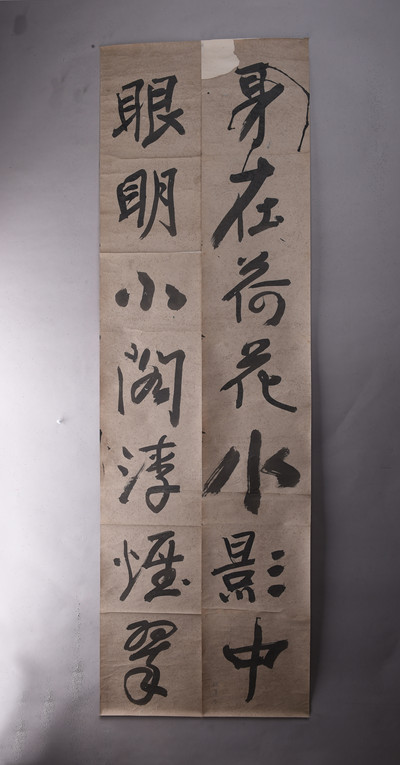 身在荷花水影中
眼明小閣浮煙翠